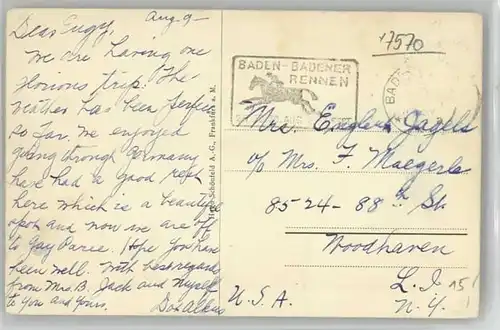 Aug. 9 -
Dear Eugy,
We are having one
glorious trip. The
weather has been perfect
so far. We enjoyed
going through Germany
have had a good rest
here which is a beautiful
spot and now we are off
to Gay Paree. Hope you have
been well. With best regards
from Mrs. B. Jack and Myself
to You and Yours.
17570
BADEN-BADENER
RENNEN
BAD
Frankfurt a. M.
Mrs.
c/o Mrs. F. Maegerle
85-24-88th St.
Woodhaven
L. I. 15
U.S.A. N.Y.